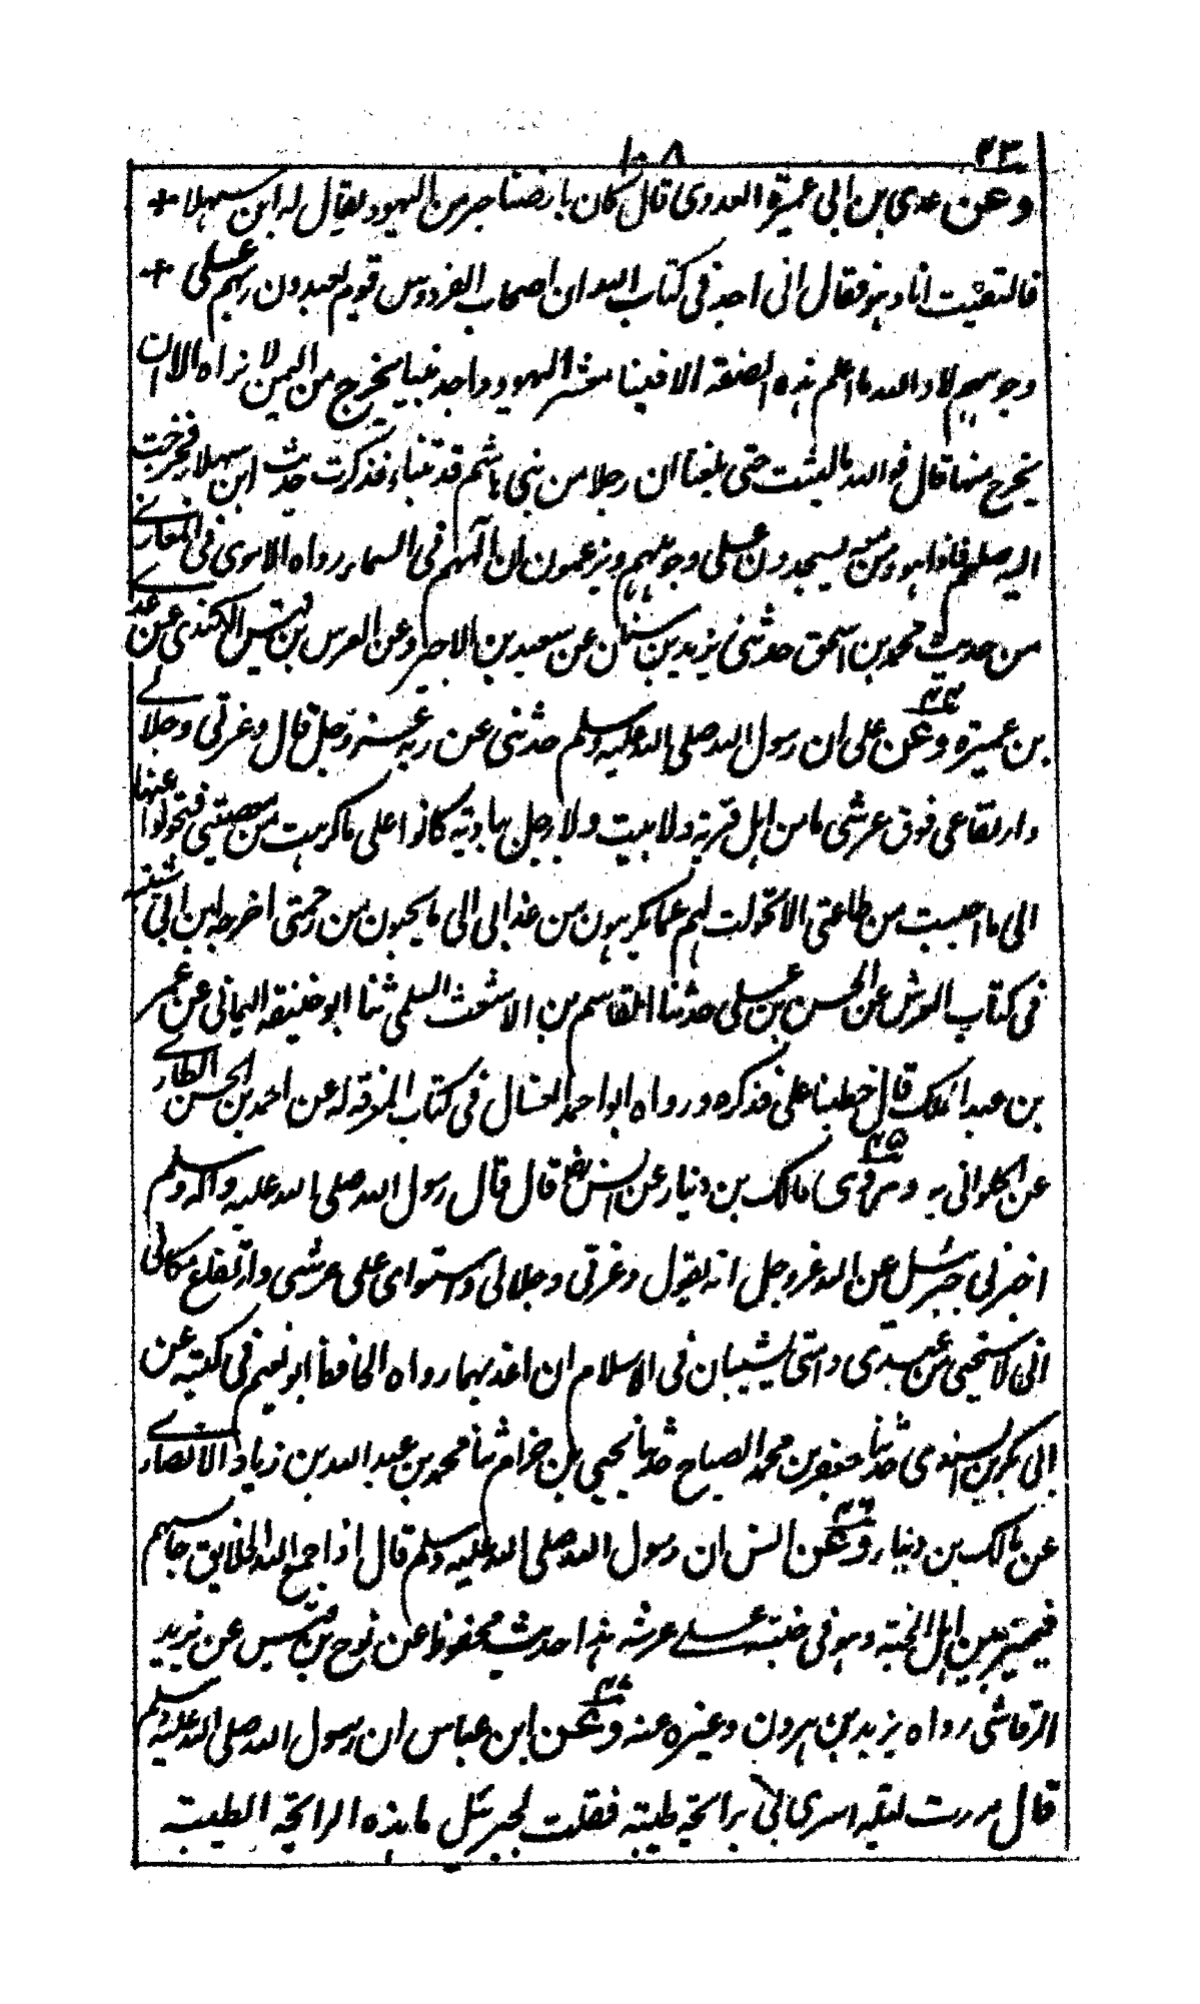 ١٠٨
٤٣
وعن عدى بن ابى عميرة العدوى قال كان بارضنا حبر من اليهود يقال له ابن سهلا
فالتقيت انا وهو فقال انى اجد فى كتاب الله ان اصحاب الفردوس قوم يعبدون ربهم على
وجوههم لا والله ما اعلم هذه الصفة الا فينا معشر اليهود واجد نبيا يخرج من اليمن لا نراه الا ان
يخرج منها قال فو الله ما لبثت حتى بلغنا ان رجلا من بنى هاشم قد تنباء فذكرت حديث ابن سهلا فخرجت
اليه صلعم فاذا هو ومن معه يسجدون على وجوههم ويزعمون ان الٰههم فى السماء رواه الاموى فى المغازى
من حديث محمد بن اسحق حدثنى يزيد بن سنان عن سعيد بن الاجير وعن العرس بن قيس الكندى عن عدى
٤٤
بن عميرة وعن على ان رسول الله صلى الله عليه وسلم حدثنى عن ربه عز وجل قال وعزتى وجلالى
وارتفاعى فوق عرشى ما من اهل قرية ولا بيت ولا رجل ببادية كانوا على ما كرهت من معصيتى فتحولوا عنها
الى ما احببت من طاعتى الا تحولت لهم عما يكرهون من عذابى الى ما يحبون من رحمتى اخرجه ابن ابى شيبة
فى كتاب العرش عن الحسن بن على حدثنا القاسم بن الاشعث السلمى ثنا ابو حنيفة اليمانى عن عمير
بن عبد الملك قال خطبنا على فذكره ورواه ابو احمد العسال فى كتاب المعرفة له عن احمد بن الحسن الطائى
٤٥
عن الحلوانى به وروى مالك بن دينار عن انس رضع قال قال رسول الله صلى الله عليه واله وسلم
اخبرنى جبرئيل عن الله عز وجل انه يقول وعزتى وجلالى واستواى على عرشى وارتفاع مكانى
انى لاستحيى من عبدى وامتى يشيبان فى الاسلام ان اعذبهما رواه الحافظ ابو نعيم فى كتبه عن
ابى بكر بن السندى حدثنا جعفر بن محمد الصباح حدثنا يحيى بن خزام ثنا محمد بن عبد الله بن زياد الانصارى
٤٦
عن مالك بن دينار وعن انس ان رسول الله صلى الله عليه وسلم قال اذا جمع الله الخلايق حاسبهم
فيميز بين اهل الجنة وهو فى جنته على عرشه هذا حديث محفوظ عن نوح بن قيس عن يزيد
٤٧
الرقاشى رواه يزيد بن هرون وغيره عنه وعن ابن عباس ان رسول الله صلى الله عليه وسلم
قال مررت ليلة اسرى بى برائحة طيبة فقلت لجبرئيل ما هذه الرائحة الطيبة